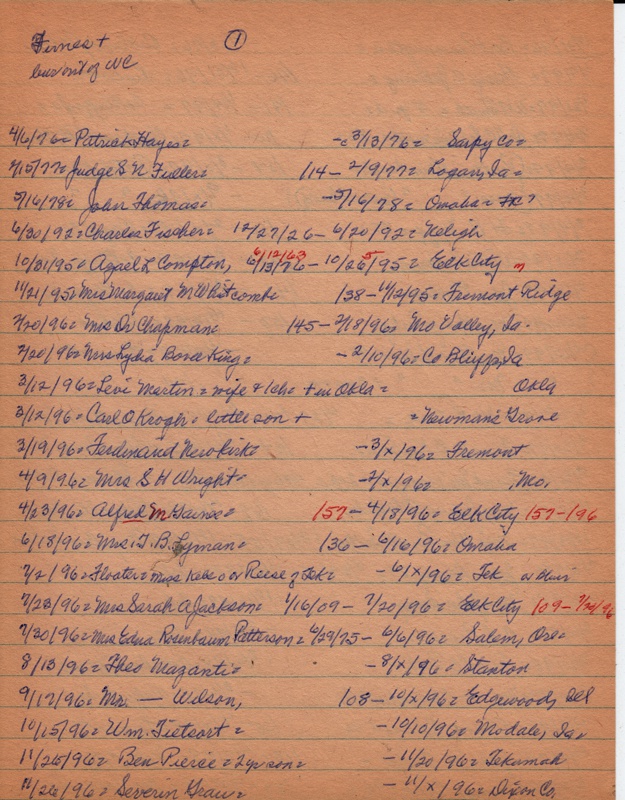 Times + ①
bur out of WC
4/6/76= Patrick Hayes= -c 3/13/76= Sarpy Co=
2/15/77= Judge S N Fuller= /14- 2/9/77= Logan, Ia=
5/16/78= John Thomas= -5/16/78= Omaha=
6/30/92= Charles Fischer= 12/27/26- 6/20/92= Neligh
6/12/63 5
10/31/95= Azael L Compton, 6/13/76- 10/26/95= Elk City m
11/21/95= Mrs Margaret M Whitcomb= /38- 11/12/95= Fremont Ridge
2/20/96= Mrs Dr Chapman= 145- 2/18/96= Mo Valley, Ia-
2/20/96= Mrs Lydia Bovee King= -2/10/96= Co Bluffs, Ia
3/12/96= Levi Martin= wife & + in Okla= Okla
3/12/96= Carl O Krogh= little son + = Newman's Grove
3/19/96= Ferdinand Newkirk= -3/x/96= Fremont
4/9/96= Mrs S H Wright= -2/x/96= , Mo,
4/23/96= Alfred M Gaines= /57- 4/18/96= Elk City 157-/96
6/18/96= Mrs. T. B. Lyman= /36- 6/16/96= Omaha
7/2/96= Floater= Miss or Reese of Tek= -6/x/96= Tek or
7/23/96= Mrs Sarah A Jackson= 1/16/09- 7/20/96= Elk City /09- 7/20/96
7/30/96= Mrs Edna Rosenbaum Patterson= 6/29/75- 6/6/96= Salem, Ore=
8/13/96= Theo Mazanti= -8/x/96= Stanton
9/17/96= Mr. — Wilson, /08- 10/x/96= Edgewood, Del
10/15/96= Wm. Tietsort= -10/10/96= Modale, Ia=
11/26/96= Ben Pierce= 2 yr son= -11/20/96= Tekamah
11/26/96= Severin Grau= -11/x/96= Dixon Co.